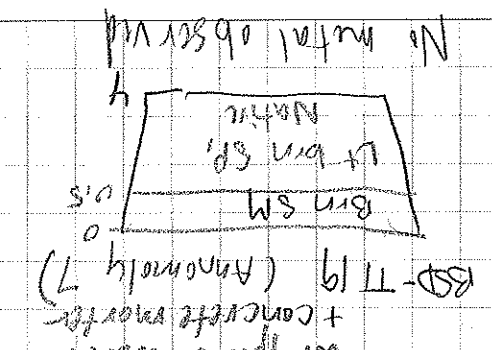 + concrete mortar
BSD-TT19 (Annomoly 7)
0
Brn SM
0.5
Lt brn SP,
Native
4
No metal observed